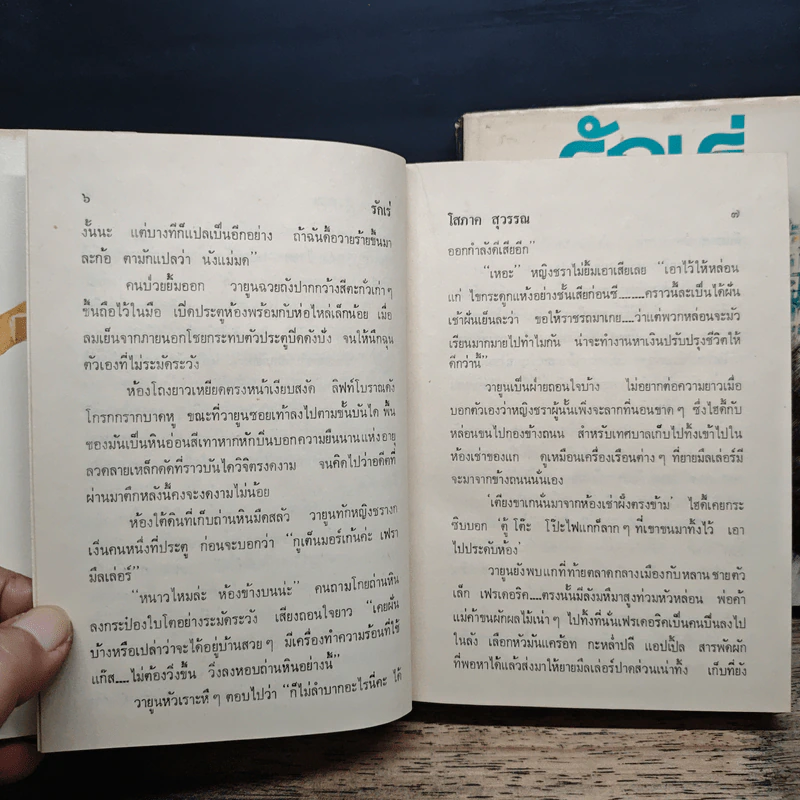 รักเร่
๖
รักเร่
งั้นนะ แต่บางทีก็แปลเป็นอีกอย่าง ถ้าฉันดื้อวายร้ายขึ้นมา
ละก้อ ตามักแปลว่า นังแม่มด”
คนป่วยยิ้มออก วายูนฉวยถังปากกว้างสีตะกั่วเก่าๆ
ขึ้นถือไว้ในมือ เปิดประตูห้องพร้อมกับห่อไหล่เล็กน้อย เมื่อ
ลมเย็นจากภายนอกโชยกระทบตัวประตูปิดดังปัง จนให้นึกฉุน
ตัวเองที่ไม่ระมัดระวัง
ห้องโถงยาวเหยียดตรงหน้าเงียบสงัด ลิฟท์โบราณดัง
โกรกกรากบาดหู ขณะที่วายูนซอยเท้าลงไปตามขั้นบันได พื้น
ของมันเป็นหินอ่อนสีเทาหากหักบิ่นบอกความยืนนานแห่งอายุ
ลวดลายเหล็กดัดที่ราวบันไดวิจิตรงดงาม จนคิดไปว่าอดีตที่
ผ่านมาตึกหลังนี้คงจะงดงามไม่น้อย
ห้องใต้ดินที่เก็บถ่านหินมืดสลัว วายูนทักหญิงชรางก
เงิ่นคนหนึ่งที่ประตู ก่อนจะบอกว่า “กูเต็นมอร์เก้นค่ะ เฟรา
มึลเล่อร์”
“หนาวไหมล่ะ ห้องข้างบนน่ะ” คนถามโกยถ่านหิน
ลงกระป๋องใบโตอย่างระมัดระวัง เสียงถอนใจยาว “เคยฝัน
บ้างหรือเปล่าว่าจะได้อยู่บ้านสวยๆ มีเครื่องทำความร้อนที่ใช้
แก๊ส....ไม่ต้องวิ่งขึ้น วิ่งลงหอบถ่านหินอย่างนี้”
วายูนหัวเราะหึๆ ตอบไปว่า “ก็ไม่ลำบากอะไรนี่คะ ได้
โสภาค สุวรรณ
๗
ออกกำลังดีเสียอีก”
“เหอะ” หญิงชราไม่ยิ้มเอาเสียเลย “เอาไว้ให้หล่อน
แก่ ไขกระดูกแห้งอย่างชั้นเสียก่อนซี........คราวนี้ละเป็นได้ฝัน
เช้าฝันเย็นละว่า ขอให้ราชรถมาเกย....ว่าแต่พวกหล่อนจะมัว
เรียนมากมายไปทำไมกัน น่าจะทำงานหาเงินปรับปรุงชีวิตให้
ดีกว่านี้”
วายูนเป็นฝ่ายถอนใจบ้าง ไม่อยากต่อความยาวเมื่อ
บอกตัวเองว่าหญิงชราผู้นั้นเพิ่งจะลากที่นอนขาดๆ ซึ่งไฮดี้กับ
หล่อนขนไปกองข้างถนน สำหรับเทศบาลเก็บไปทิ้งเข้าไปใน
ห้องเช่าของแก ดูเหมือนเครื่องเรือนต่างๆ ที่ยายมึลเล่อร์มี
จะมาจากข้างถนนนั่นเอง
‘เตียงขาเกนั่นมาจากห้องเช่าฝั่งตรงข้าม’ ไฮดี้เคยกระ
ซิบบอก ‘ตู้ โต๊ะ โป๊ะไฟแกก็ลากๆ ที่เขาขนมาทิ้งไว้ เอา
ไปประดับห้อง’
วายูนยังพบแกที่ท้ายตลาดกลางเมืองกับหลานชายตัว
เล็ก เฟรเดอริค....ตรงนั้นมีลังมหึมาสูงท่วมหัวหล่อน พ่อค้า
แม่ค้าขนผักผลไม้เน่าๆ ไปทิ้งที่นั่นเฟรเดอริคเป็นคนปีนลงไป
ในลัง เลือกหัวมันแคร้อท กะหล่ำปลี แอปเปิ้ล สารพัดผัก
ที่พอหาได้แล้วส่งมาให้ยายมึลเล่อร์ปาดส่วนเน่าทิ้ง เก็บที่ยัง